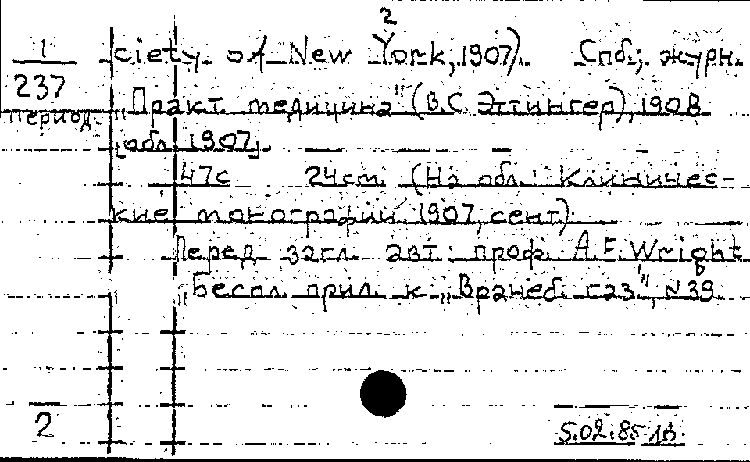 2
1 ciety of New York, 1907). Спб; журн.
237 „Практ. медицина" (В.С. Эттингер), 1908
период. [обл. 1907].
47с 24см. (На обл.: Клиничес-
кие монографии 1907, сент)
Перед загл. авт: проф. A.E. Wright
„Беспл. прил. к „Врачеб. газ", №39
2 5.02.85